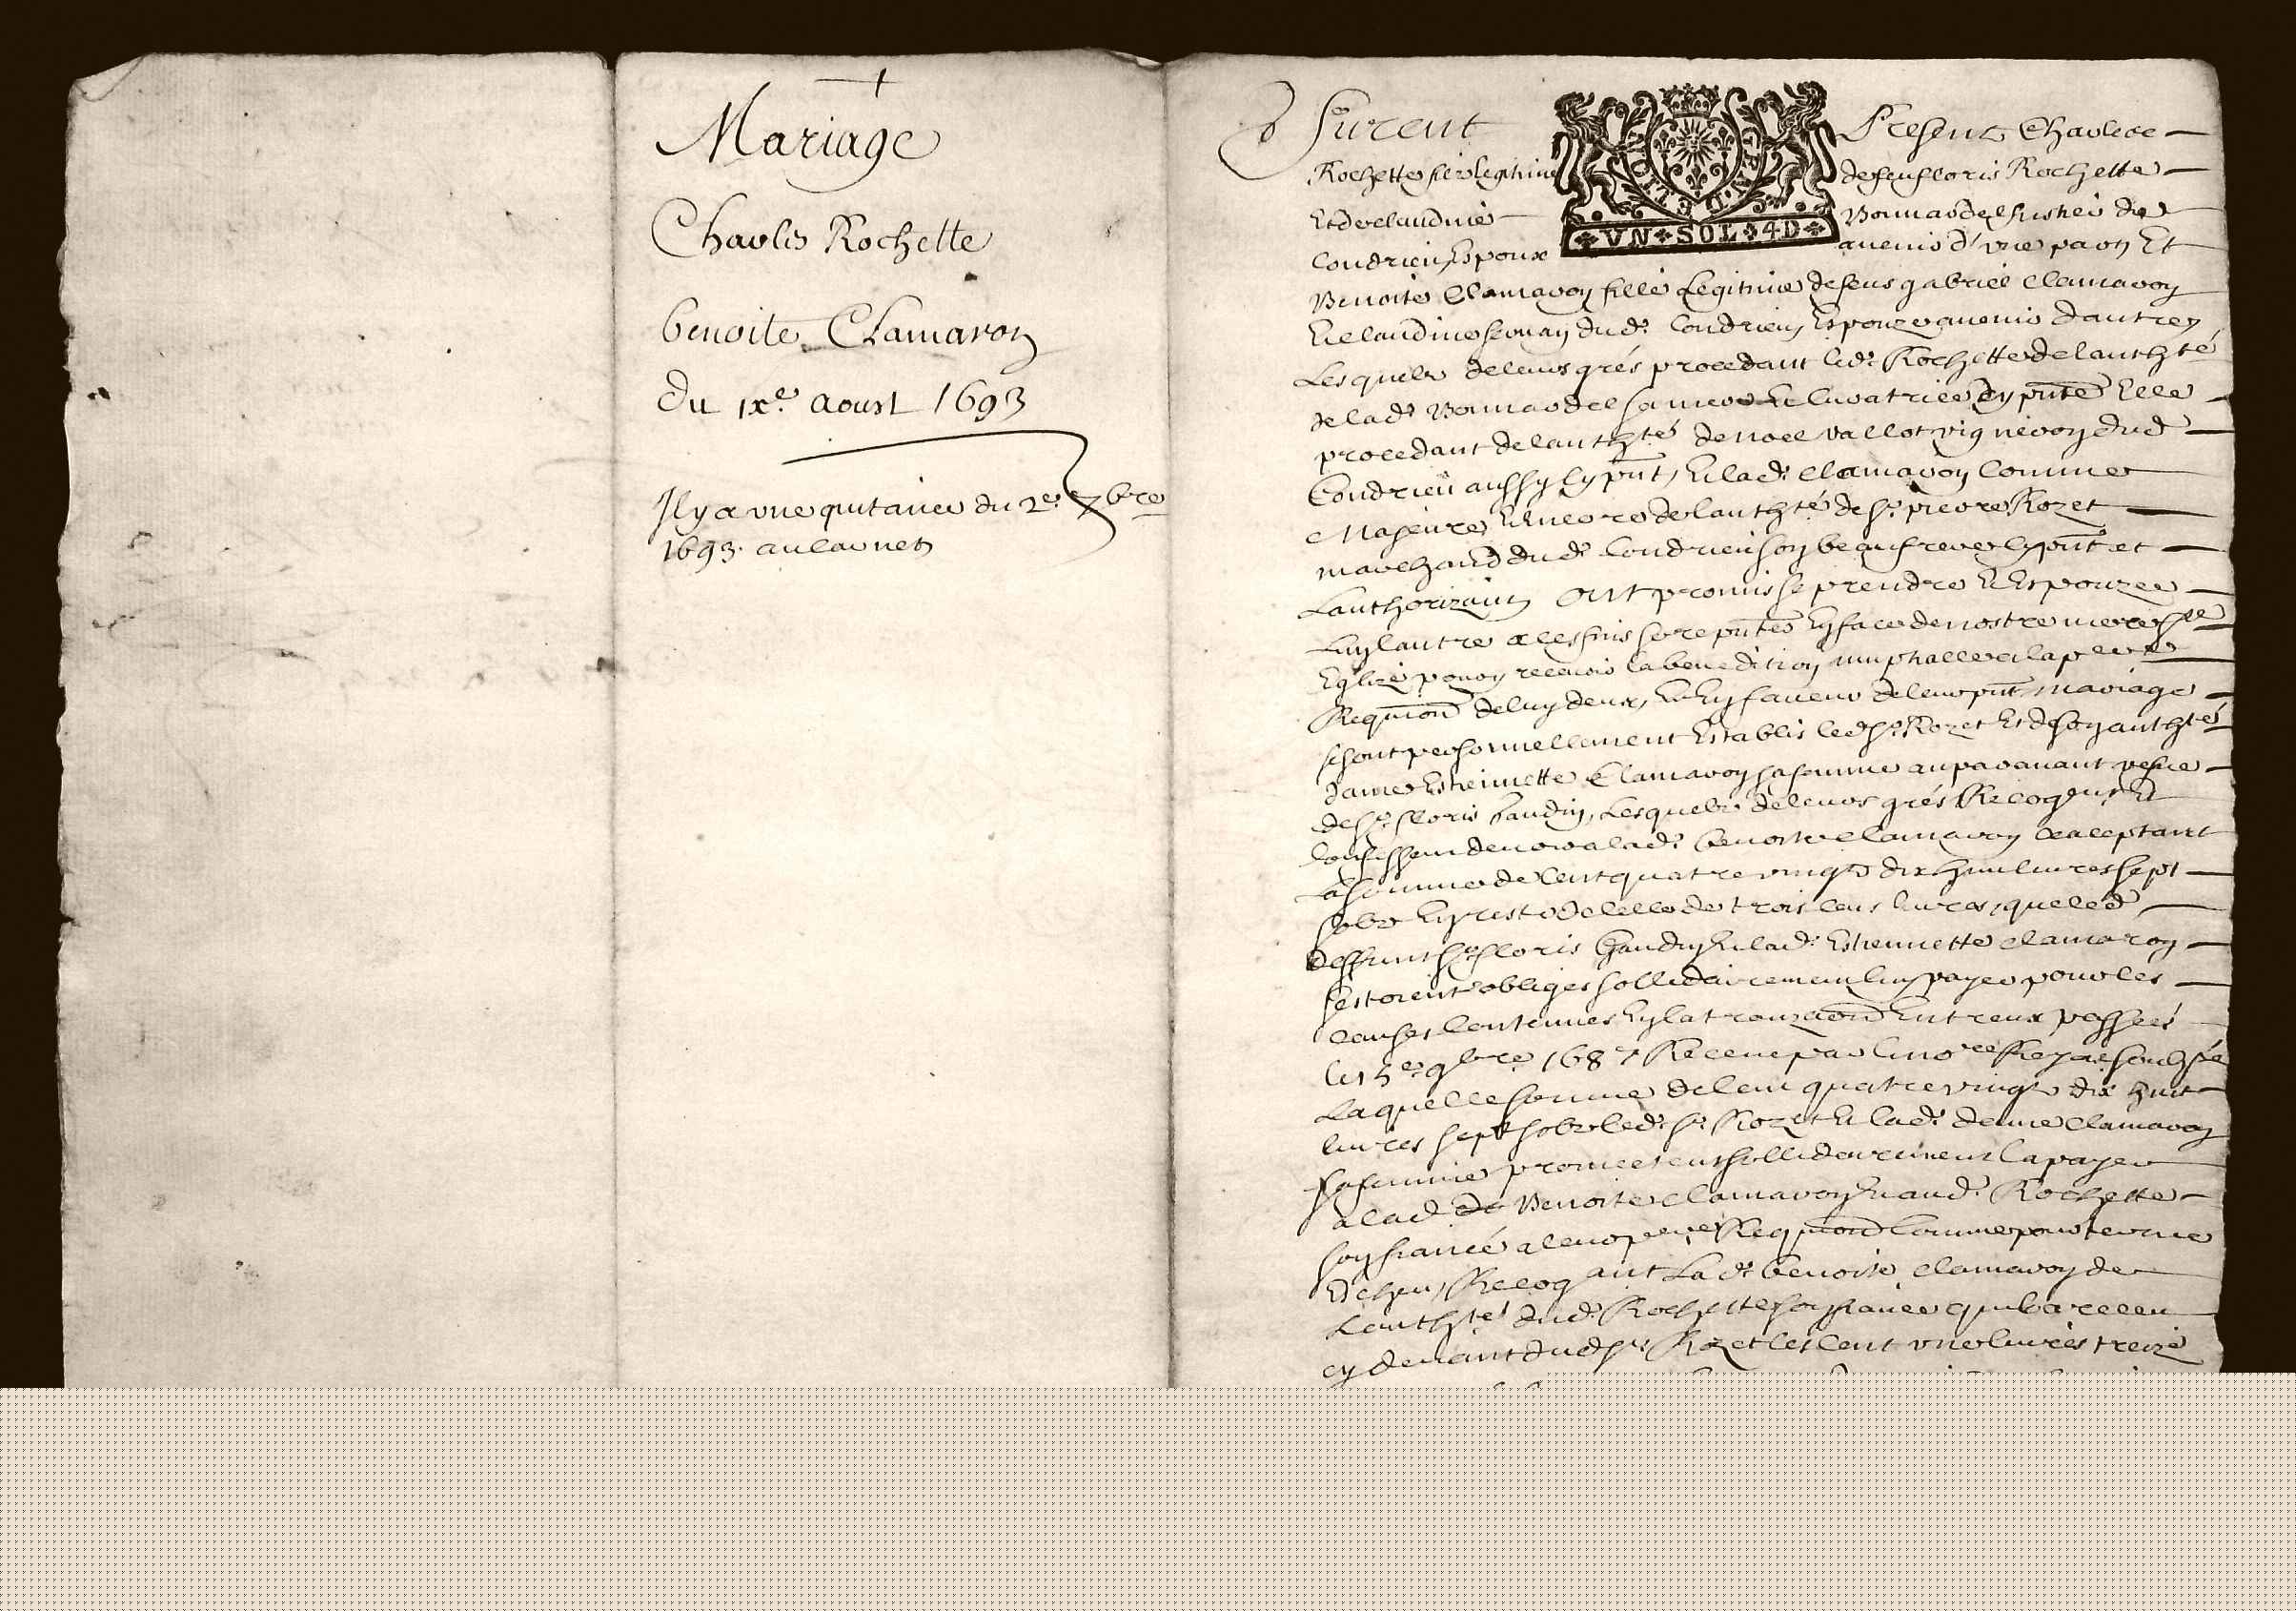 Mariage
Charles Rochette
benoite Clamaron
du ixe. aoust 1693
Il y a une quitance du 2e. 7bre
1693. au carnet
Furent Presens Charles
Rochette filz legitime de feu floris Rochette
Et de claudine Bonnardel
Condrieu Espoux avenir d'une part Et
Benoite Clamaron fille Legitime de feus gabriel clamaron
Et claudine du d. Condrieu Espouze avenir dautre
Lesquels de leurs grés procedant led. Rochette de lauthté
de lad. Bonnardel sa mere Et curatrice cy pnte Elle
procedant de lauthté de noel vallot vigneron dud
Condrieu aussy cy pnt, Et lad. clamaron comme
Majeure Encore de lauthté de sr. pierre Rozet
marchand dud. Condrieu son beaufrere cy pnt et
Lauthorizant ont promis se prendre Et Espouzer
Lun lautre a ces fins se repnter En face de nostre mere ste
Eglize pour y recevoir la benedition nuptialle a la pere
Requion de lun deux, Et En faveur de leur pnt mariage
se sont personnellement Establis led sr. Rozet Et de son authté
dame Estiennette Clamaron sa femme auparavant vefve
de sr. floris Gaudin, Lesquels de leurs grés Recog Et
confessent devoir a lad. benoite clamaron acceptant
La somme de cent quatre vingt dix huit livres sept
solz En reste de celle de trois cens livres, que led
deffunt sr. floris Gaudin Et lad. Estiennette clamaron
sestoient obliges sollidairement luy payer pour les
causes contenues En la tranzaon Entreux passée
le 5e. 9bre 1687 Receue par le nore Royal soubsé
Laquelle somme de cent quatre vingt dix huit
livres sept solz led. sr. Rozet Et lad. dame clamaron
sa femme promettent sollidairement la payer
a lad de Benoite clamaron Et aud. Rochette
son fiancé a leur pere Requion comme pour terme
Escheu, Recog ant Lad. benoite clamaron de
Lauthté dud. Rochette son fiancé quil a receu
cy devant dud sr. Rozet les cent une livres treize